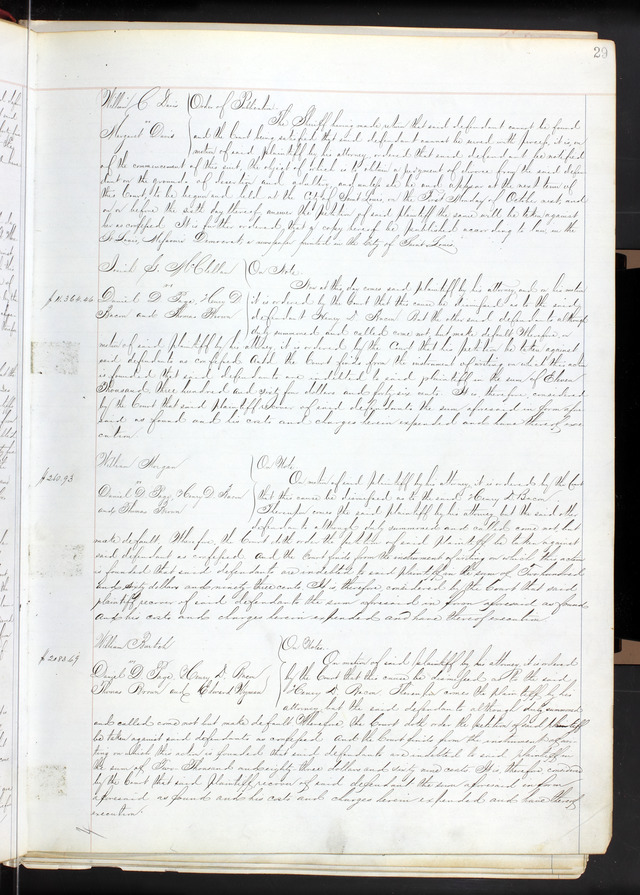 29
William C. Davis } Order of Publication
vs
Margaret Davis
The Sheriff having made return that said defendant cannot be found
and the Court being satisfied that said defendant cannot be served with process it is, on
motion of said plaintiff by his attorney, ordered that said defendant be notified
of the commencement of this suit, the object of which is to obtain a judgment of divorce from the said defen
dant on the grounds of desertion and adultery, and unless she be and appear at the next term of
this Court to be begun and held at the City of Saint Louis, on the First Monday of October next, and
on or before the sixth day thereof answer the petition of said plaintiff the same will be taken against
her as confessed. It is further ordered, that a copy hereof be published according to law in the
St Louis, Missouri Democrat a newspaper printed in the City of Saint Louis.
} On Note
vs
$11,364.46
Daniel D. Page, Henry D.
Bacon and Thomas Brown
Now at this day comes said plaintiff by his attorney and on his motion
it is ordered by the Court that this cause be dismissed as to the said
defendant Henry D. Bacon. But the other said defendants although
duly summoned and called come not, but make default. Wherefore, on
motion of said plaintiff by his attorney it is ordered by the Court that his petition be taken against
said defendants as confessed. And the Court finds from the instrument of writing on which this action
is founded that said defendants are indebted to said plaintiff in the sum of Eleven
Thousand three hundred and sixty four dollars and forty six cents. It is therefore, considered
by the Court that said plaintiff recover of said defendants the sum aforesaid in form afore
said as found and his costs and charges herein expended and have thereof exe
cution.
William Morgan } On Note
vs
$260.93
Daniel D. Page, Henry D. Bacon
and Thomas Brown
On motion of said plaintiff by his attorney, it is ordered by the Court
that this cause be dismissed as to the said Henry D. Bacon
Thereupon comes the said plaintiff by his attorney but the said other
defendants although duly summoned and called come not but
make default. Wherefore, the Court doth order the petition of said plaintiff be taken against
said defendants as confessed. And the Court finds from the instrument of writing on which this action
is founded that said defendants are indebted to said plaintiff in the sum of Two hundred
and sixty dollars and ninety three cents. It is therefore, considered by the Court that said
plaintiff recover of said defendants the sum aforesaid in form aforesaid as found
and his costs and charges herein expended and have thereof execution.
William } On Notes
vs
$2083.69
Daniel D. Page, Henry D. Bacon
Thomas Brown and Edward
On motion of said plaintiff by his attorney, it is ordered
by the Court that this cause be dismissed as to the said
Henry D. Bacon. Thereupon comes the plaintiff by his
attorney but the said defendants although duly summoned
and called come not but make default. Wherefore, the Court doth order the petition of said plaintiff
be taken against said defendants as confessed. And the Court finds from the instruments of wri
ting on which this action is founded that said defendants are indebted to said plaintiff in
the sum of Two Thousand and eighty three dollars and sixty nine cents. It is, therefore, considered
by the Court that said plaintiff recover of said defendants the sum aforesaid in form
aforesaid as found and his costs and charges herein expended and have thereof
execution.